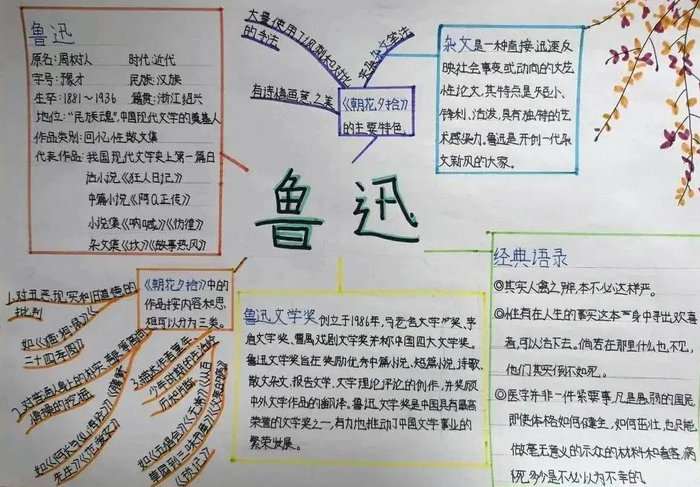 鲁迅
原名:周树人 时代:近代
字号:豫才 民族:汉族
生卒:1881~1936 籍贯:浙江绍兴
地位:“民族魂”,中国现代文学的奠基人
作品类别:回忆性散文集
代表作品:我国现代文学史上第一篇白
话小说《狂人日记》
中篇小说《阿Q正传》
小说集《呐喊》《彷徨》
杂文集《坟》《故事热风》
大量使用了
的手法
有诗情画意之美
《朝花夕拾》
的主要特色。
杂文是一种直接、迅速反
映社会事变或动向的文艺
性论文,其特点是短小、
锋利、活泼,具有独特的艺
术感染力。鲁迅是开创一代杂
文新风的大家。
鲁迅
《朝花夕拾》中的
作品按内容和思
想可以分为三类。
1.对丑恶现实和旧道德的
批判
二十四孝图》
鲁迅文学奖创立于1986年,与茅盾文学奖,老
舍文学奖,曹禺戏剧文学奖并称中国四大文学奖。
鲁迅文学奖旨在奖励优秀中篇小说、短篇小说、诗歌、
散文杂文、报告文学,文学理论评论的创作,并奖励
中外文学作品的翻译。鲁迅文学奖是中国具有最高
荣誉的文学奖之一,有力地推动了中国文学事业的
繁荣发展。
经典语录
◎其实人禽之辨,本不必这样严。
看,可以活下去。倘若在那里什么也不见,
他们其实倒不如死。
◎医学并非一件紧要事,凡是愚弱的国民
即使体格如何健全,如何茁壮,也只能
做毫无意义的示众的材料和看客,病
死多少是不必以为不幸的。